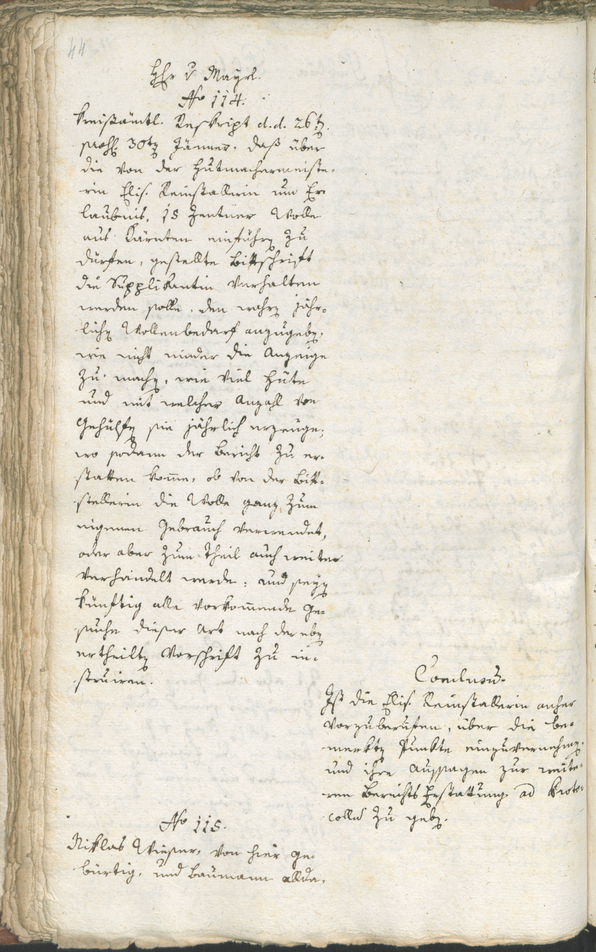 44
Hr v. Mayrl.
No 114.
Kreisämtl. Reskript d.d. 26t
prœs. 30ten Jänner, daß über
die von der Hutmachermeiste-
rin Elis. Reinstallerin um Er-
laubnis, 15 Zentner Wolle
aus Kärnten einführen zu
dürfen, gestellte Bittschrift
die Supplikantin verhalten
werden solle, den wahren jähr-
lichen Wollenbedarf anzugeben,
wie nicht minder die Anzeige
zu machen, wie viel Hüte
und mit welcher Anzahl von
Gehülfen sie jährlich erzeuge;
wo sodann der Bericht zu er-
statten komme, ob von der Bitt-
stellerin die Wolle ganz zum
eigenen Gebrauch verwendet,
oder aber zum Theil auch weiter
verhandelt werde; und seyen
künftig alle vorkommende Ge-
suche dieser Art nach der eben
ertheilten Vorschrift zu in-
struiren.
Conclusum.
Ist die Elis. Reinstallerin anher
vorzuberufen, über die be-
merkten Punkte einzuvernehmen,
und ihre Aussagen zur weite-
ren Berichts Erstattung ad Proto-
collum zu geben.
No 115.
Niklas Wieser, von hier ge-
bürtig, und Baumann allda,